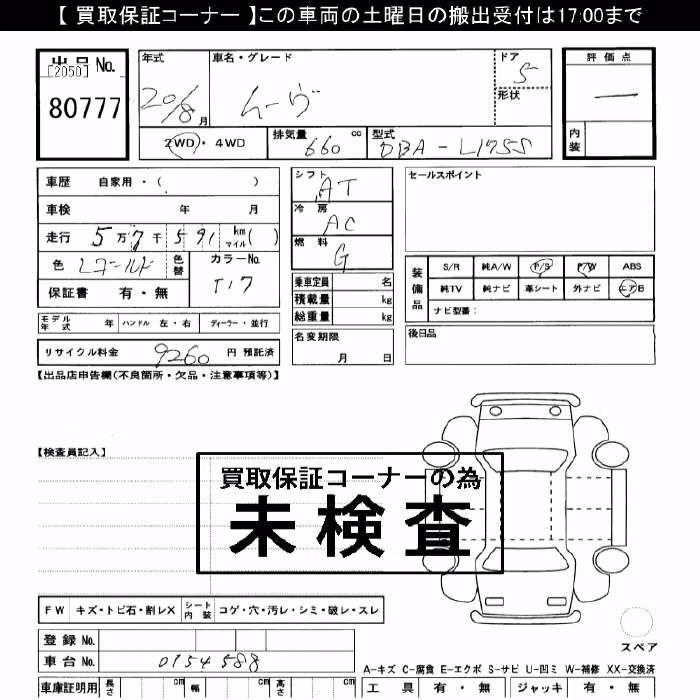 【 買取保証コーナー 】この車両の土曜日の搬出受付は17:00まで
出品 No.
[2050]
80777
年式
20/8
月
車名・グレード
ムーヴ
ドア
5
形状
評価点
―
内装
2WD・4WD
排気量
660
cc
型式
DBA-L175S
車歴 自家用・( )
車検 年 月
走行 5万7千591 km マイル( )
色 Lゴールド
色替
カラーNo.
T17
保証書 有・無
シフト
AT
冷房
AC
燃料
G
セールスポイント
乗車定員 名
積載量 kg
総重量 kg
装備品
S/R 純A/W P/S P/W ABS
純TV 純ナビ 革シート 外ナビ エアB
ナビ型番:
モデル年式 年
ハンドル 左・右
ディーラー・並行
名変期限
月 日
後日品
リサイクル料金 9260 円 預託済
【出品店申告欄(不良箇所・欠品・注意事項等)】
【検査員記入】
買取保証コーナーの為
未検査
FW キズ・トビ石・割レX
シート内装 コゲ・穴・汚レ・シミ・破レ・スレ
スペア
登録 No.
車台 No. 0154588
A-キズ C-腐食 E-エクボ S-サビ U-凹ミ W-補修 XX-交換済
車庫証明用 長さ cm 幅 cm 高さ cm
工具 有・無 ジャッキ 有・無